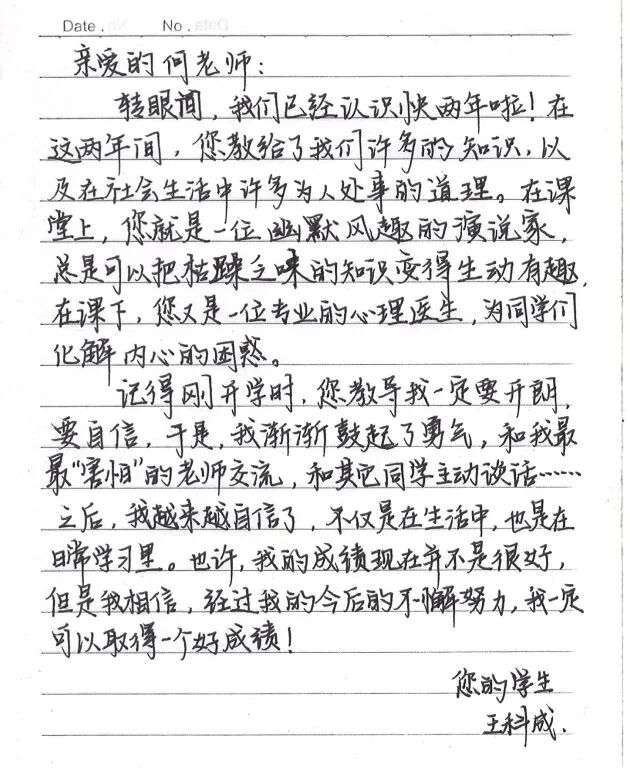 Date. No.
亲爱的何老师:
转眼间,我们已经认识快两年啦!在
这两年间,您教给了我们许多的知识,以
及在社会生活中许多为人处事的道理。在课
堂上,您就是一位幽默风趣的演说家,
总是可以把枯躁乏味的知识变得生动有趣,
在课下,您又是一位专业的心理医生,为同学们
化解内心的困惑。
记得刚开学时,您教导我一定要开朗,
要自信,于是,我渐渐鼓起了勇气,和我最
最"害怕"的老师交流,和其它同学主动谈话……
之后,我越来越自信了,不仅是在生活中,也是在
日常学习里。也许,我的成绩现在并不是很好,
但是我相信,经过我的今后的不懈努力,我一定
可以取得一个好成绩!
您的学生
王科成.